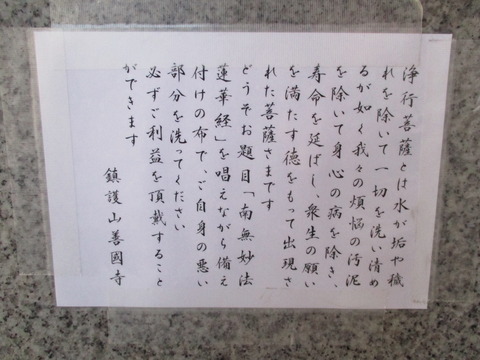 浄行菩薩とは水が垢や穢
れを除いて一切を洗い清め
るが如く我々の煩悩の汚泥
を除いて身心の病を除き、
寿命を延ばし、衆生の願い
を満たす徳をもって出現さ
れた菩薩さまです
どうぞお題目「南無妙法
蓮華経」を唱えながら備え
付けの布で、ご自身の悪い
部分を洗ってください
必ずご利益を頂戴すること
ができます
鎮護山善國寺